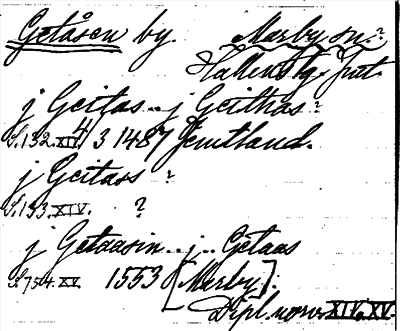 Getåsen by. Marby sn.?
Hallens tg. Jmt.
j Geitas .. j Geithas?
S. 132. XIV. 4/3 1487 Jemtland.
j Geitass ?
S. 133. XIV. ?
j Getaasin .. j .. Getaas
S. 754. XV. 1553 [Marby].
Dipl. norv. XIV. XV.